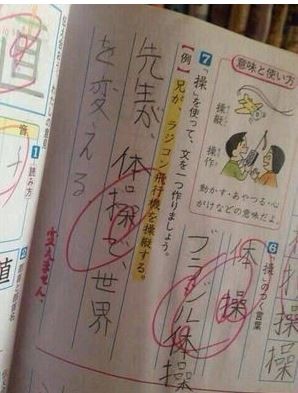 意味と使い方
操縦
操作
動かす・あやつる・心
がけなどの意味だよ。
6 「操」のつく言葉
体操
ラジオ体操
7 「操」を使って、文を一つ作りましょう。
【例】兄が、ラジコン飛行機を操縦する。
先生が、体操で、世界
を変える
変えません。
直
1 読み方
2
植